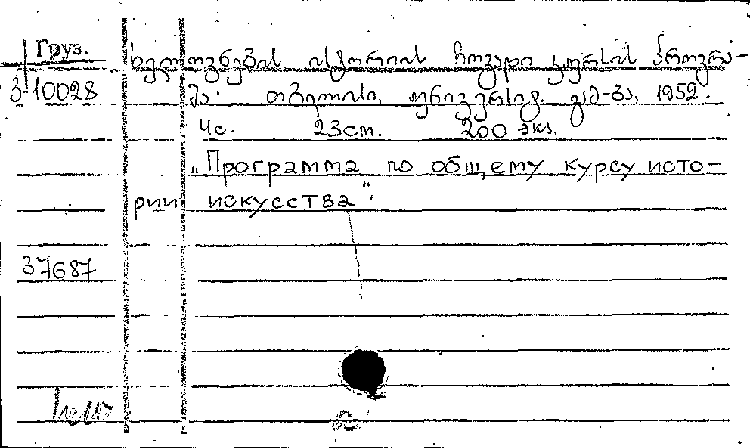 Груз.
ხელოვნების ისტორიის ზოგადი კურსის პროგრა-
3 10028
მა. თბილისი, უნივერსიტ. გამ-ბა, 1952.
4с. 23см. 200 экз.
„Программа по общему курсу исто-
рии искусства".
37687